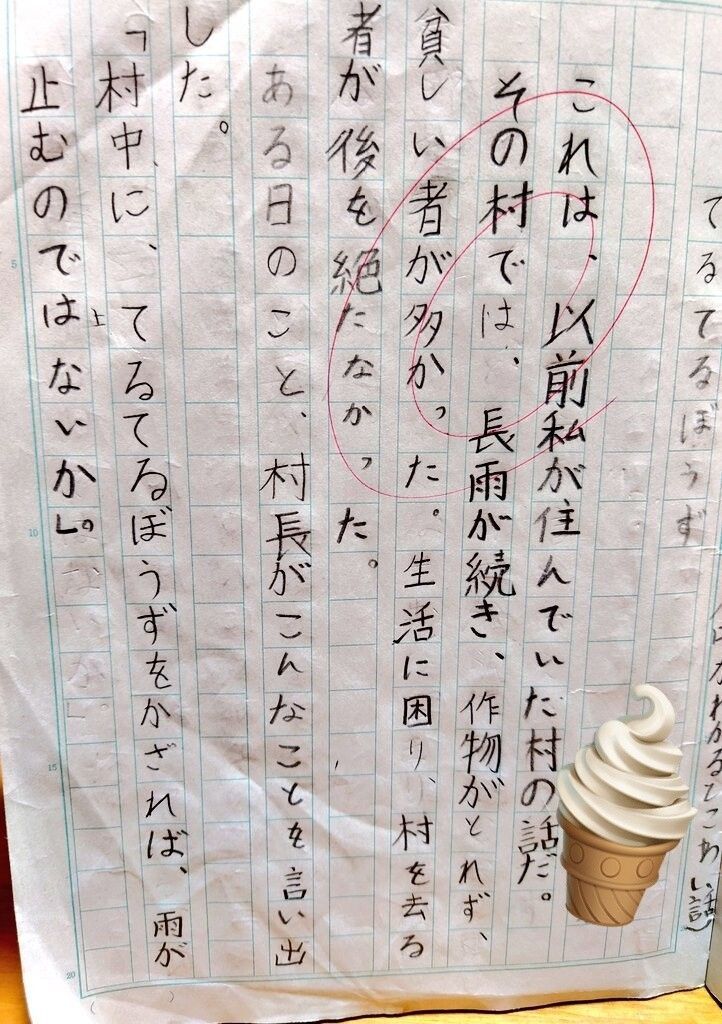 がわかるとこわい話)
てるてるぼうず
これは、以前私が住んでいた村の話だ。
その村では、長雨が続き、作物がとれず、
貧しい者が多かった。生活に困り、村を去る
者が後を絶たなかった。
ある日のこと、村長がこんなことを言い出
した。
「村中に、てるてるぼうずをかざれば、雨が
止むのではないか」。
5
10
15
20